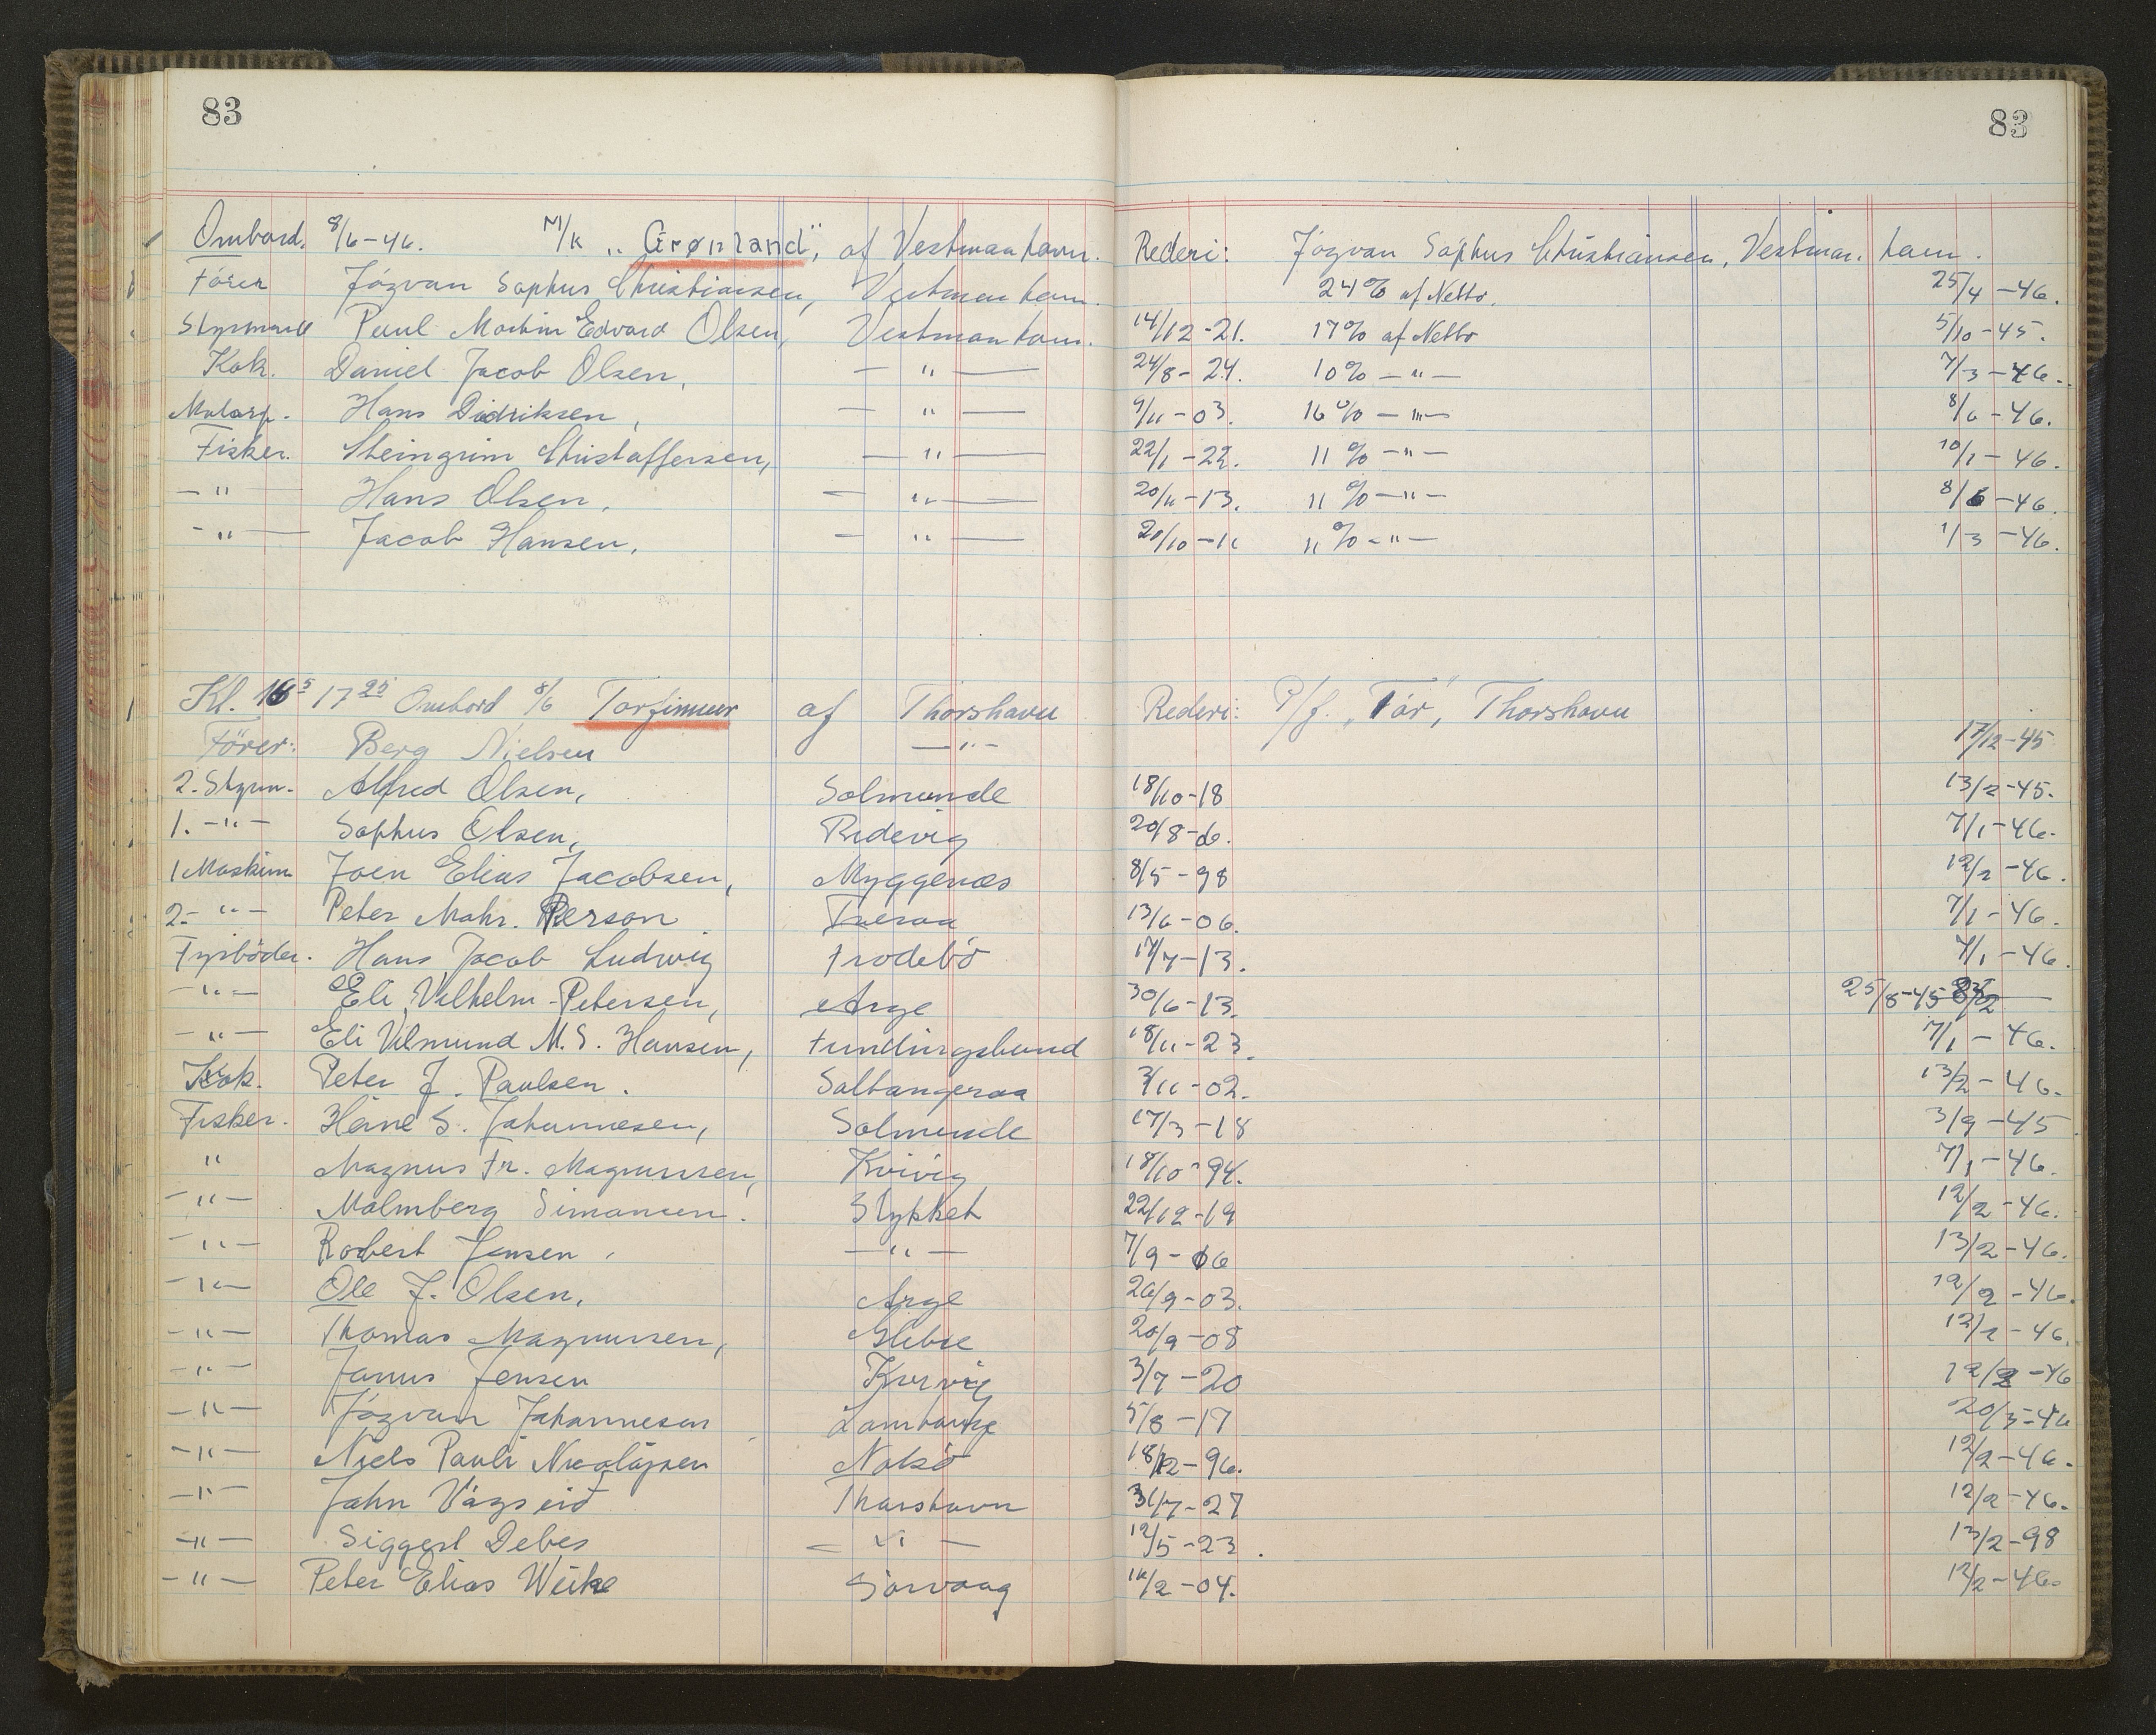 83 83
Ombord. 8/6-46. M/K „Grønland", af Vestmanhavn. Rederi: Józvan Sophus Christiansen, Vestman. havn.
Förer Józvan Sophus Christiansen, Vestmanhavn. 24% af Netto. 25/4-46.
Styrmand Paul Martin Edvard Olsen, Vestmanhavn. 14/12-21. 17% af Netto 5/10-45.
Kok. Daniel Jacob Olsen, — " — 24/8-24. 10% — " — 7/3-46.
Motorp. Hans Didriksen, — " — 9/11-03. 16% — " — 8/6-46.
Fisker. Steingrim Christoffersen, — " — 22/1-22. 11% — " — 10/1-46.
— " — Hans Olsen, — " — 20/11-13. 11% — " — 8/6-46.
— " — Jacob Hansen, — " — 20/10-11 11% — " — 1/3-46.
Kl. 17 25 Ombord 8/6 Torfinnur af Thorshavn Rederi: P/f. „Tór", Thorshavn
Förer: Berg Nielsen — " — 17/12-45
2. Styrm. Alfred Olsen, Solmunde 18/10-18 13/2-45.
1. — " — Sophus Olsen, Redevig 20/8-06. 7/1-46.
1 Maskinm Joen Elias Jacobsen, Myggenæs 8/5-98 12/2-46.
2. — " — Peter Mohr. Person Tveraa 13/6-06. 7/1-46.
Fyrböder. Hans Jacob Ludwig Frodebö 17/7-13. 7/1-46.
— " — Eli Vilhelm Petersen, Arge 30/6-13. 25/8-45
— " — Eli Vilmund M. S. Hansen, Fundingsbund 18/11-23. 7/1-46.
Kok. Peter J. Paulsen. Saltangeraa 3/11-02. 13/2-46.
Fisker. Heine S. Johannesen, Solmunde 17/3-18 3/9-45
" Magnus Fr. Magnussen, Kvivig 18/10-94. 7/1-46.
— " — Malmberg Simonsen. Stykket 22/12-19 12/2-46.
— " — Robert Jensen, — " — 7/9-06 13/2-46.
— " — Ole J. Olsen, Arge 26/9-03. 12/2-46.
— " — Thomas Magnussen, Glibre 20/9-08 12/2-46.
— " — Janus Jensen Kvivig 3/7-20 12/2-46
— " — Józvan Johannesen Lamhauge 5/8-17 20/3-46
— " — Niels Pauli Nicolajsen Nolsö 18/12-96. 12/2-46.
— " — John Vágseið Thorshavn 31/7-27 12/2-46.
— " — Siggert Debes — " — 12/5-23. 13/2-98
— " — Peter Elias Weihe Sörvaag 14/2-04. 12/2-46.